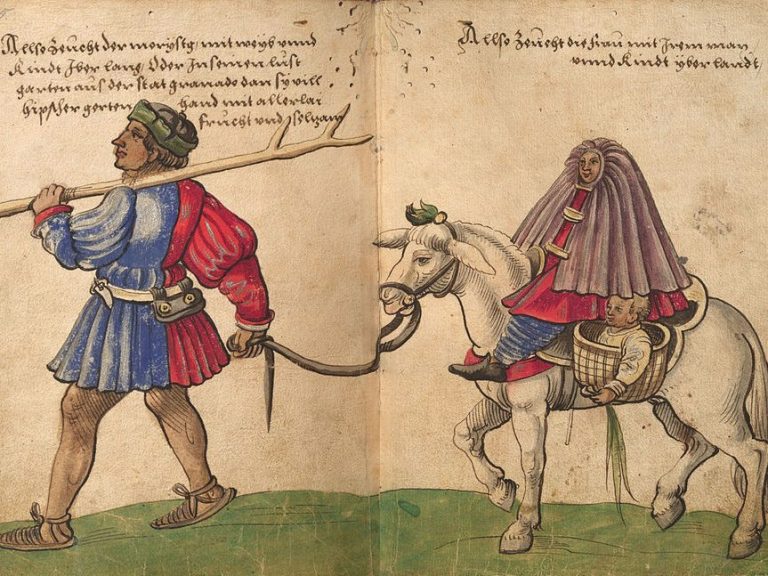 Allso Zeucht der morystg mit weyb vnnd
Kindt yber lang, Oder Inseinen lust
garten aus der stat granado dan sy vill
hipscher gerten hand mit allerlai
frucht vnd selzam
Allso Zeucht die frau mit Irem man
vnnd Kindt yber landt,